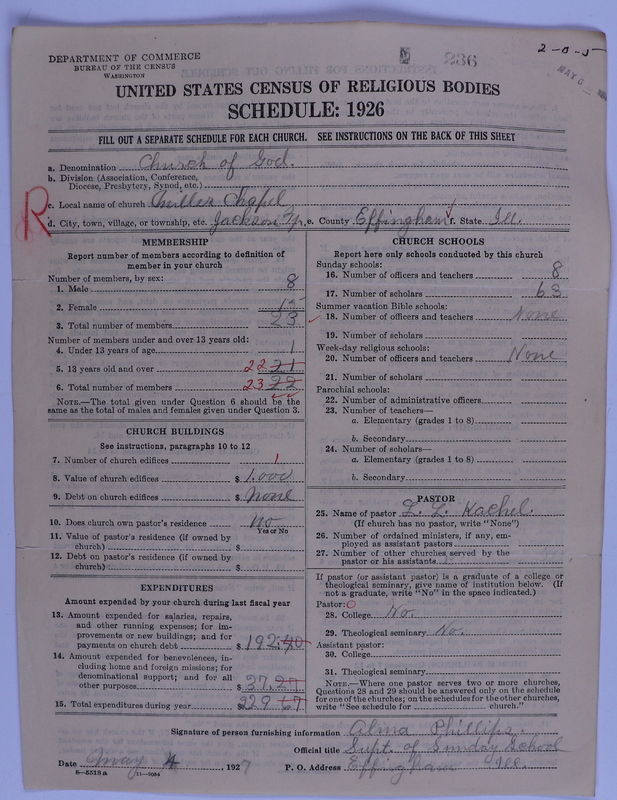 DEPARTMENT OF COMMERCE
BUREAU OF THE CENSUS
WASHINGTON
236
2-0-5
MAY 6
UNITED STATES CENSUS OF RELIGIOUS BODIES
SCHEDULE: 1926
FILL OUT A SEPARATE SCHEDULE FOR EACH CHURCH. SEE INSTRUCTIONS ON THE BACK OF THIS SHEET
a. Denomination Church of God.
b. Division (Association, Conference,
Diocese, Presbytery, Synod, etc.)
R
c. Local name of church Miller Chapel
d. City, town, village, or township, etc. Jackson Tp. e. County Effingham f. State Ill.
MEMBERSHIP
Report number of members according to definition of
member in your church
Number of members, by sex:
1. Male 8
2. Female 15
3. Total number of members 23
Number of members under and over 13 years old:
4. Under 13 years of age 1
5. 13 years old and over 22 21
6. Total number of members 23 22
NOTE.—The total given under Question 6 should be the
same as the total of males and females given under Question 3.
CHURCH BUILDINGS
See instructions, paragraphs 10 to 12
7. Number of church edifices 1
8. Value of church edifices $ 1.000
9. Debt on church edifices $ None
10. Does church own pastor's residence No
Yes or No
11. Value of pastor's residence (if owned by
church) $
12. Debt on pastor's residence (if owned by
church) $
EXPENDITURES
Amount expended by your church during last fiscal year
13. Amount expended for salaries, repairs,
and other running expenses; for im-
provements or new buildings; and for
payments on church debt $ 192.40
14. Amount expended for benevolences, in-
cluding home and foreign missions; for
denominational support; and for all
other purposes $ 37.27
15. Total expenditures during year $ 229.67
CHURCH SCHOOLS
Report here only schools conducted by this church
Sunday schools:
16. Number of officers and teachers 8
17. Number of scholars 63
Summer vacation Bible schools:
18. Number of officers and teachers None
19. Number of scholars
Week-day religious schools:
20. Number of officers and teachers None
21. Number of scholars
Parochial schools:
22. Number of administrative officers
23. Number of teachers—
a. Elementary (grades 1 to 8)
b. Secondary
24. Number of scholars—
a. Elementary (grades 1 to 8)
b. Secondary
PASTOR
25. Name of pastor L. L. Kachel.
(If church has no pastor, write "None")
26. Number of ordained ministers, if any, em-
ployed as assistant pastors
27. Number of other churches served by the
pastor or his assistants
If pastor (or assistant pastor) is a graduate of a college or
theological seminary, give name of institution below. (If
not a graduate, write "No" in the space indicated.)
Pastor:
28. College No.
29. Theological seminary No.
Assistant pastor:
30. College
31. Theological seminary
NOTE.—Where one pastor serves two or more churches,
Questions 28 and 29 should be answered only on the schedule
for one of the churches; on the schedules for the other churches,
write "See schedule for church."
Signature of person furnishing information Alma Phillips.
Official title Supt. of Sunday School
Date May 4, 1927 P. O. Address Effingham Ill.
8—5518a 11—9054